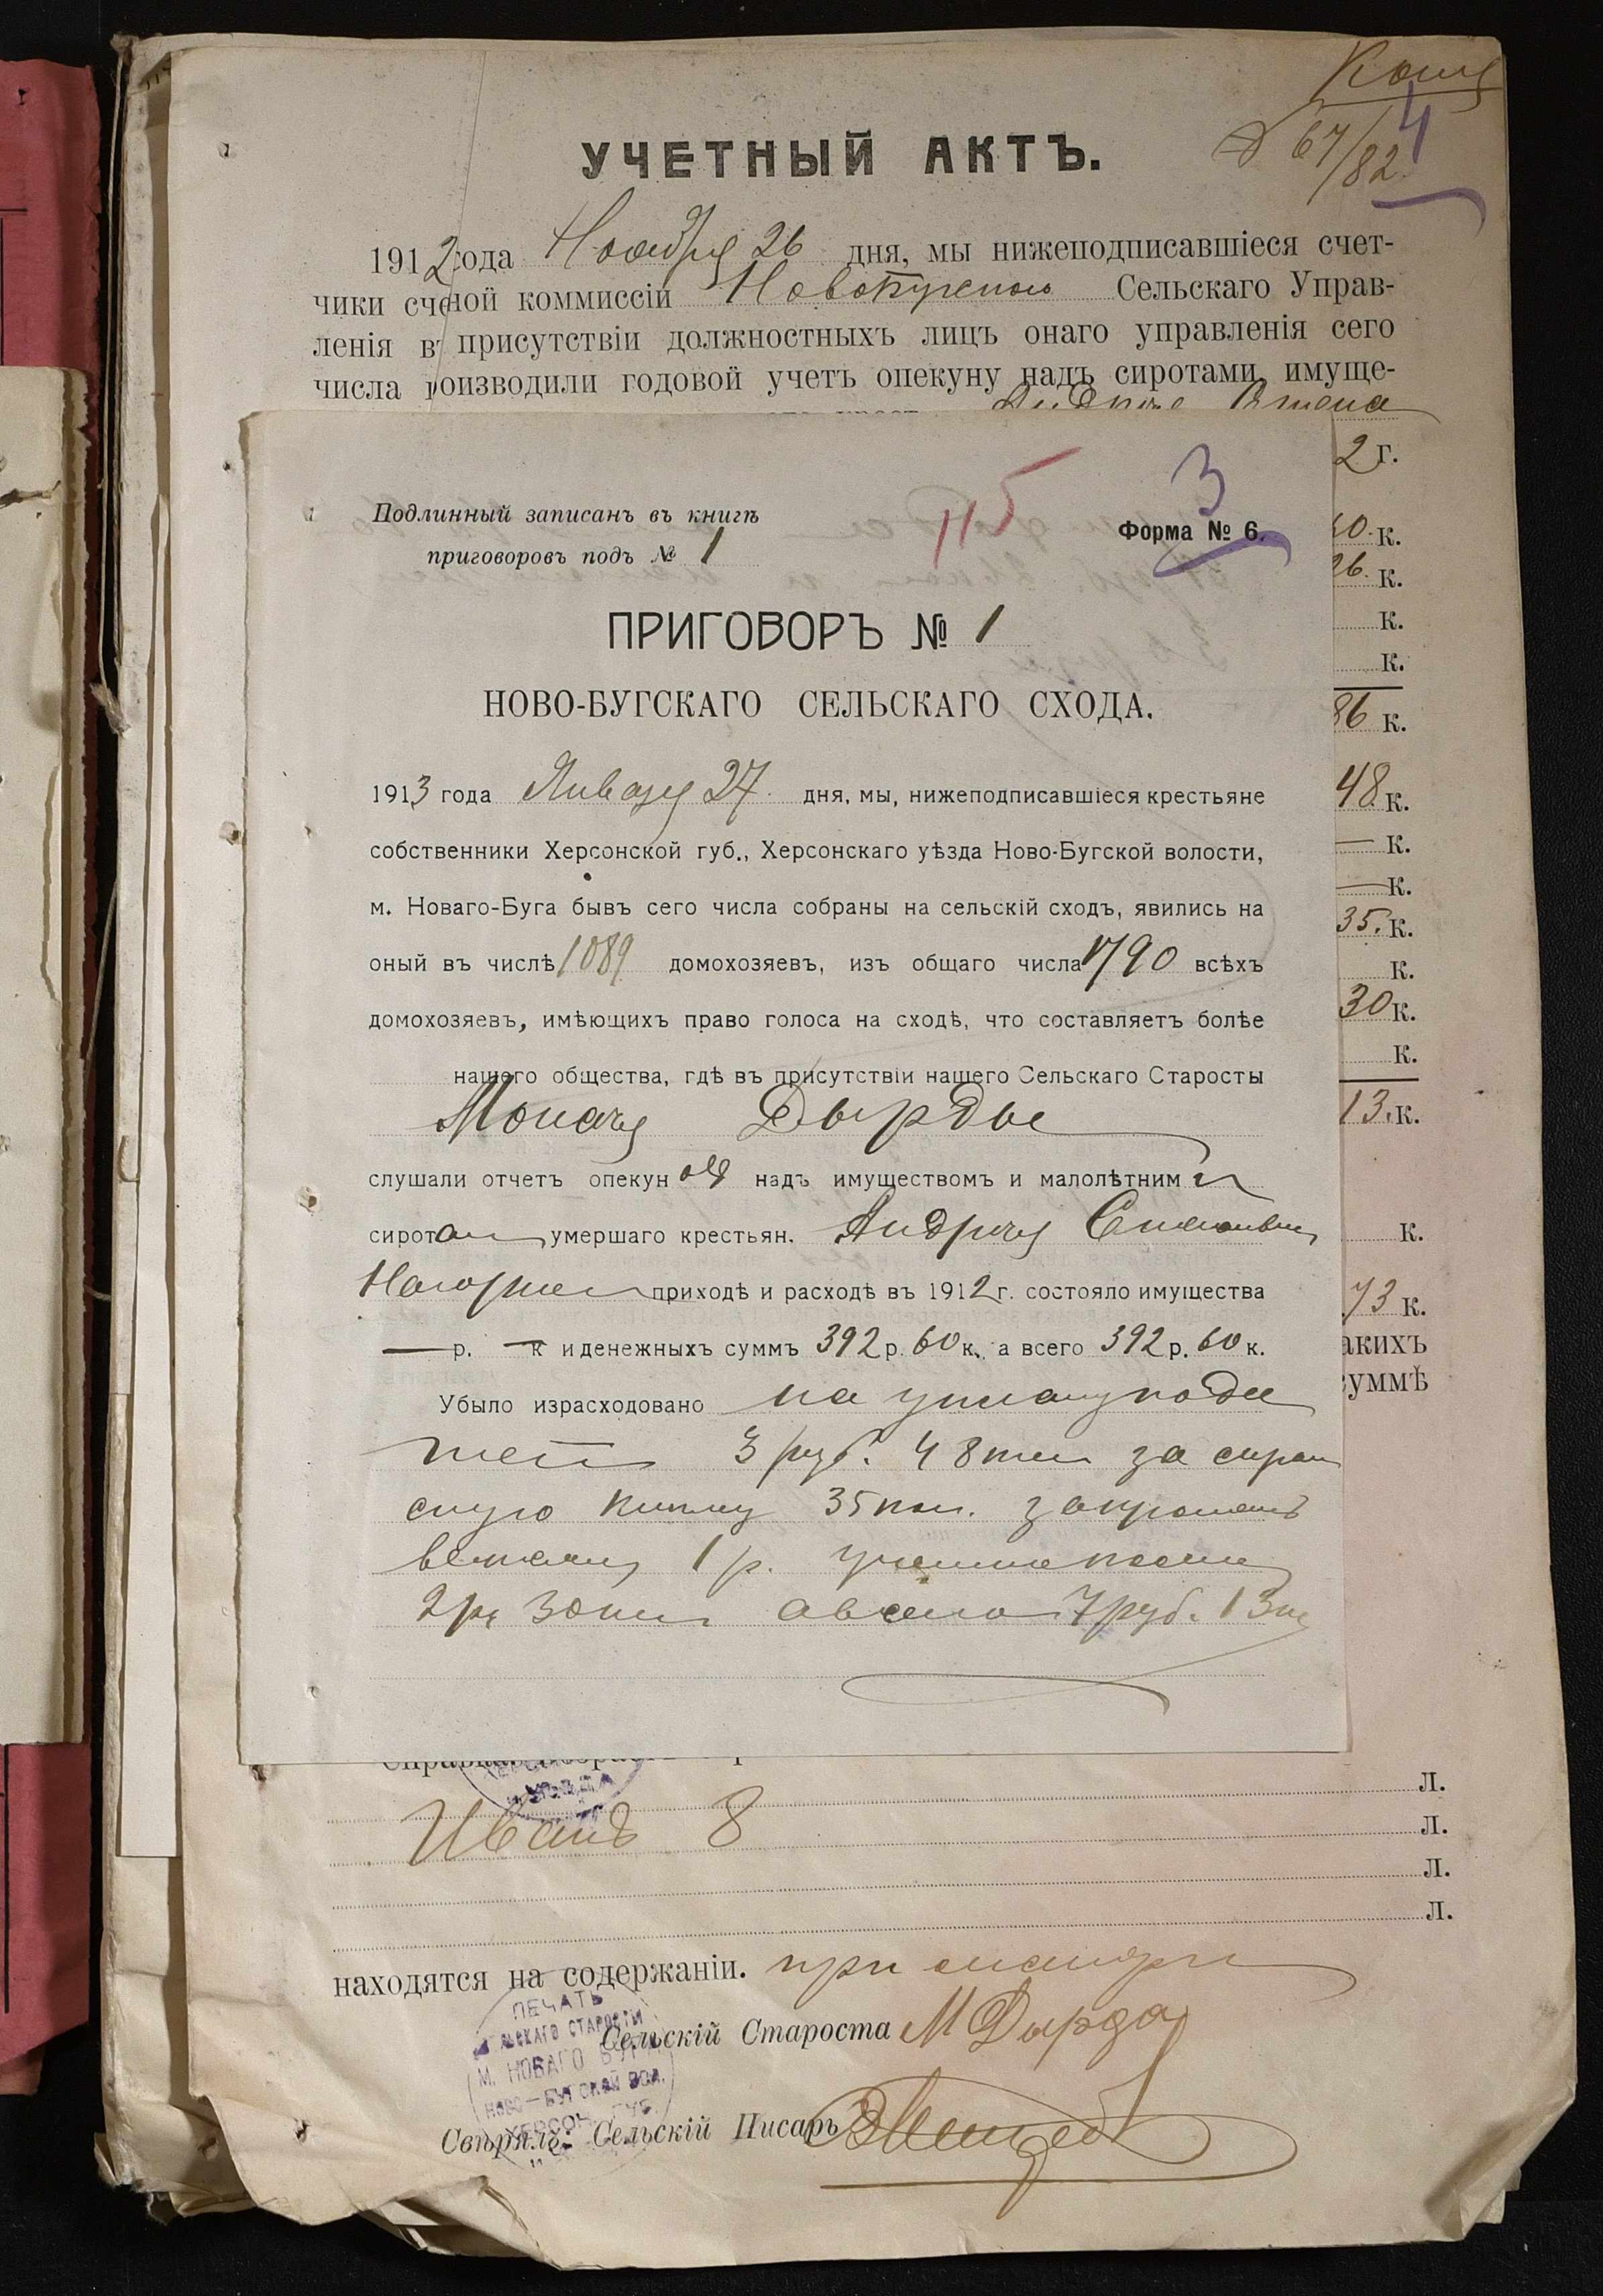 Копія
Д 67/82
4
УЧЕТНЫЙ АКТЪ.
1912 года Ноября 26 дня, мы нижеподписавшіеся счет-
чики счетной коммиссіи Новобугскаго Сельскаго Управ-
ленія въ присутствіи должностныхъ лицъ онаго управленія сего
числа производили годовой учетъ опекуну надъ сиротами, имуще-
2 г.
60 к.
26 к.
к.
к.
86 к.
48 к.
— к.
— к.
35 к.
к.
30 к.
к.
13 к.
к.
73 к.
акихъ
суммѣ
3
115
Подлинный записанъ въ книгѣ
приговоровъ подъ № 1
Форма № 6.
ПРИГОВОРЪ № 1
НОВО-БУГСКАГО СЕЛЬСКАГО СХОДА.
1913 года Января 27 дня, мы, нижеподписавшіеся крестьяне
собственники Херсонской губ., Херсонскаго уѣзда Ново-Бугской волости,
м. Новаго-Буга бывъ сего числа собраны на сельскій сходъ, явились на
оный въ числѣ 1089 домохозяевъ, изъ общаго числа 1790 всѣхъ
домохозяевъ, имѣющихъ право голоса на сходѣ, что составляетъ болѣе
нашего общества, гдѣ въ присутствіи нашего Сельскаго Старосты
Мокея Дырды
слушали отчетъ опекуновъ надъ имуществомъ и малолѣтними
сиротами умершаго крестьян. Андрея Степанова
приходѣ и расходѣ въ 1912 г. состояло имущества
— р. — к и денежныхъ суммъ 392 р. 60 к. а всего 392 р. 60 к.
Убыло израсходовано на уплату пода
тей 3 руб. 48 коп за сирот
скую книгу 35 коп.
1 р.
2 р. 30 коп а всего 7 руб. 13 к
Л.
Иванъ 8
Л.
Л.
Л.
находятся на содержаніи. при матери
Сельскій Староста М Дырда
Свѣрялъ: Сельскій Писарь
ПЕЧАТЬ
СЕЛЬСКАГО СТАРОСТЫ
М. НОВАГО БУГА
НОВО-БУГСКОЙ ВОЛ.
ХЕРСОН. ГУБ.